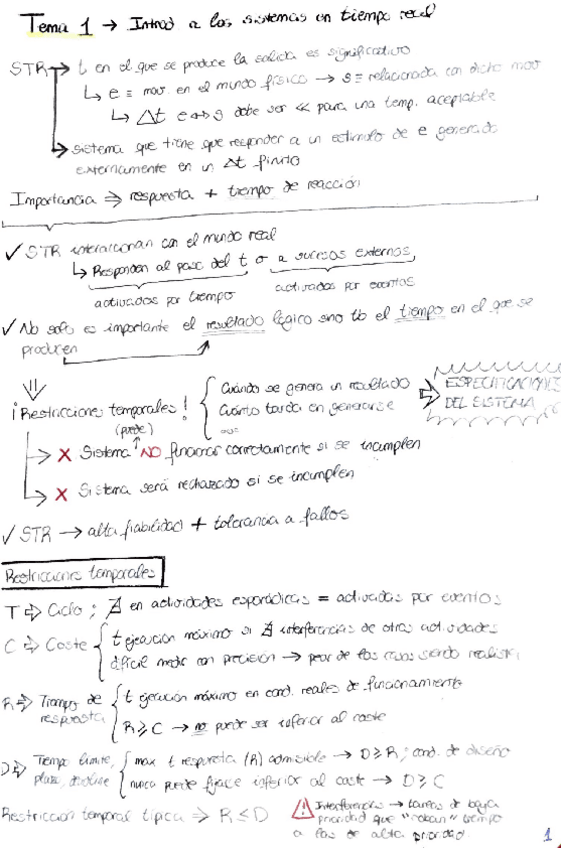 Tema 1 → Introd a los sistemas en tiempo real
STR → t en el que se produce la salida es significativo
↳ e ≡ mov. en el mundo físico → s ≡ relacionada con dicho mov
↳ Δt e↔s debe ser << para una temp. aceptable
→ sistema que tiene que responder a un estímulo de e generado
externamente en un Δt finito
Importancia ⇒ respuesta + tiempo de reacción
✓ STR interaccionan con el mundo real
↳ Responden al paso del t o a sucesos externos
activados por tiempo activados por eventos
✓ No solo es importante el resultado lógico sino tb el tiempo en el que se
producen
¡Restricciones temporales! { Cuándo se genera un resultado
Cuánto tarda en generarse
⇒ ESPECIFICACIONES
DEL SISTEMA
(puede)
→ X Sistema NO funcionar correctamente si se incumplen
→ X Sistema será rechazado si se incumplen
✓ STR → alta fiabilidad + tolerancia a fallos
Restricciones temporales
T ⇒ Ciclo; ∄ en actividades esporádicas = activadas por eventos
C ⇒ Coste { t ejecución máximo si ∄ interferencias de otras actividades
difícil medir con precisión → peor de los casos siendo realista
R ⇒ Tiempo de respuesta { t ejecución máximo en cond. reales de funcionamiento
R ≥ C → no puede ser inferior al coste
D ⇒ Tiempo límite, plazo, deadline { max t respuesta (R) admisible → D ≥ R; cond. de diseño
nunca puede fijarse inferior al coste → D ≥ C
Restricción temporal típica ⇒ R ≤ D
⚠ Interferencias → tareas de baja
prioridad que "roban" tiempo
a las de alta prioridad.
1